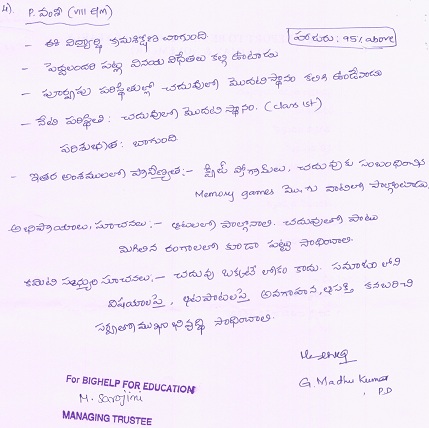 4) P. వంశీ (VIII E/M)
- ఈ విద్యార్థి క్రమశిక్షణ బాగుంది.
హాజరు : 95% above
- పెద్దలందరి పట్ల వినయ విధేయతలు కల్గి ఉంటాడు
- పూర్వపు పరిస్థితుల్లో చదువులో మొదటిస్థానం కలిగి ఉండేవాడు
- నేటి పరిస్థితి : చదువులో మొదటి స్థానం. (class 1st)
పరిశుభ్రత : బాగుంది
- ఇతర అంశములలో ప్రావీణ్యత :- క్విజ్ ప్రోగ్రామ్‌లు, చదువుకు సంబంధించిన
Memory games మొ॥గు వాటిలో పాల్గొంటాడు.
అభిప్రాయాలు, సూచనలు :- ఆటలలో పాల్గొనాలి. చదువుతో పాటు
మిగిలిన రంగాలలో కూడా పట్టు సాధించాలి.
కమిటి సభ్యుల సూచనలు :- చదువు ఒక్కటే లోకం కాదు. సమాజంలోని
విషయాలపై, ఆటపాటలపై, అవగాహన, ఆసక్తి కనబరిచి
సర్వతోముఖాభివృద్ధి సాధించాలి.
For BIGHELP FOR EDUCATION
M. Sarojini
MANAGING TRUSTEE
G. Madhu Kumar
, P.D